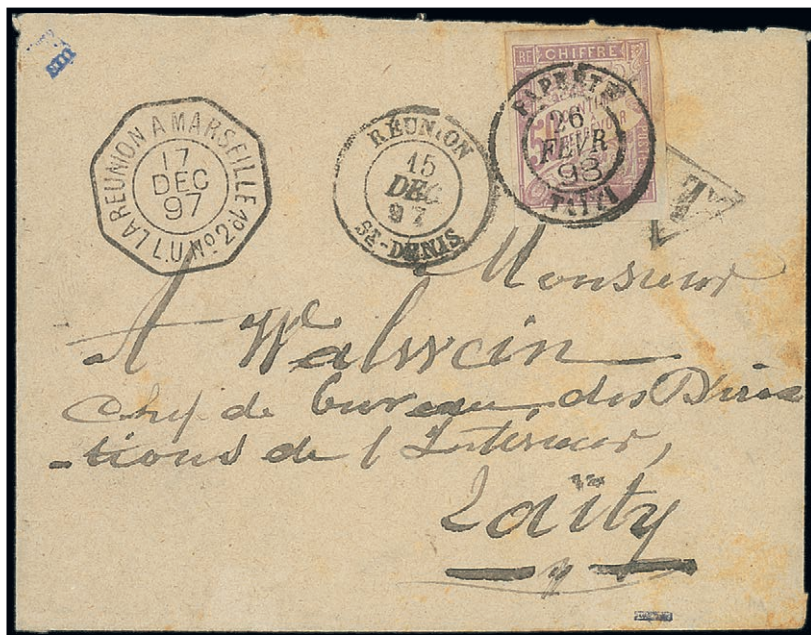 LA REUNION A MARSEILLE
17
DEC
97
L.U. Nº 2
REUNION
15
DEC
97
ST-DENIS
CHIFFRE
PAPEETE
26
FEVR
98
TAITI
T
Monsieur
A Walwein
Chef de bureau des Direc
-tions de l'Intérieur,
Taïty